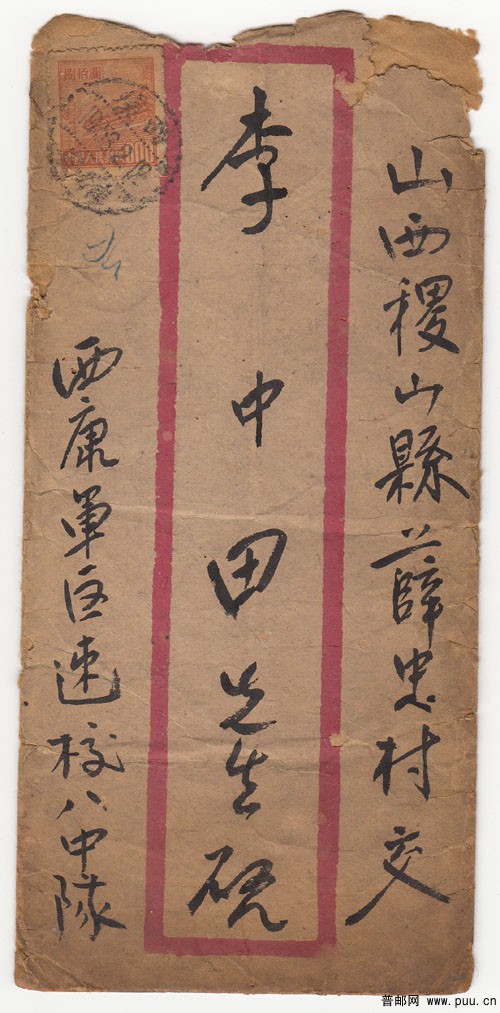 山西稷山縣薛忠村交
李中田先生砚
西康軍区速校八中隊
捌佰圓
普邮网 www.puu.cn